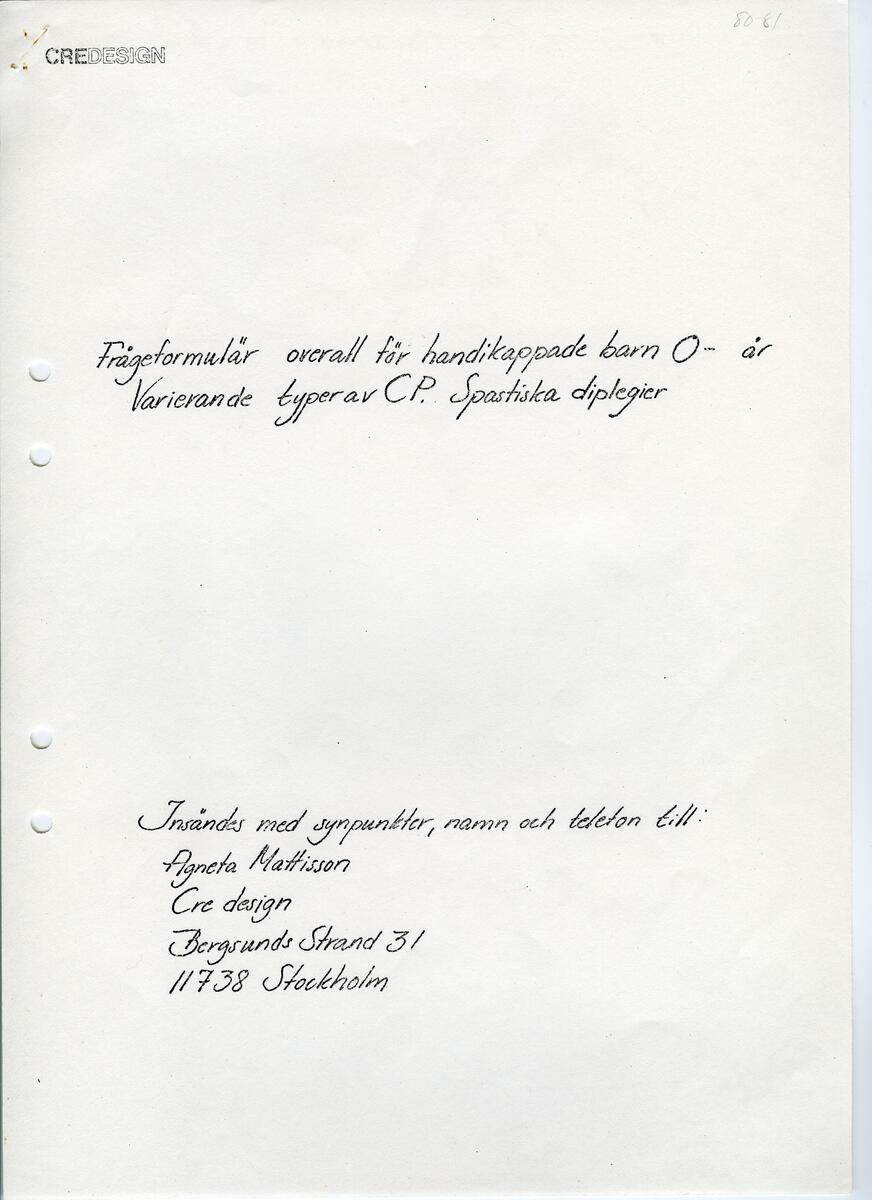 80-81
CREDESIGN
Frågeformulär overall för handikappade barn 0- år
Varierande typer av CP. Spastiska diplegier
Insändes med synpunkter, namn och telefon till:
Agneta Mattisson
Cre design
Bergsunds Strand 31
11738 Stockholm